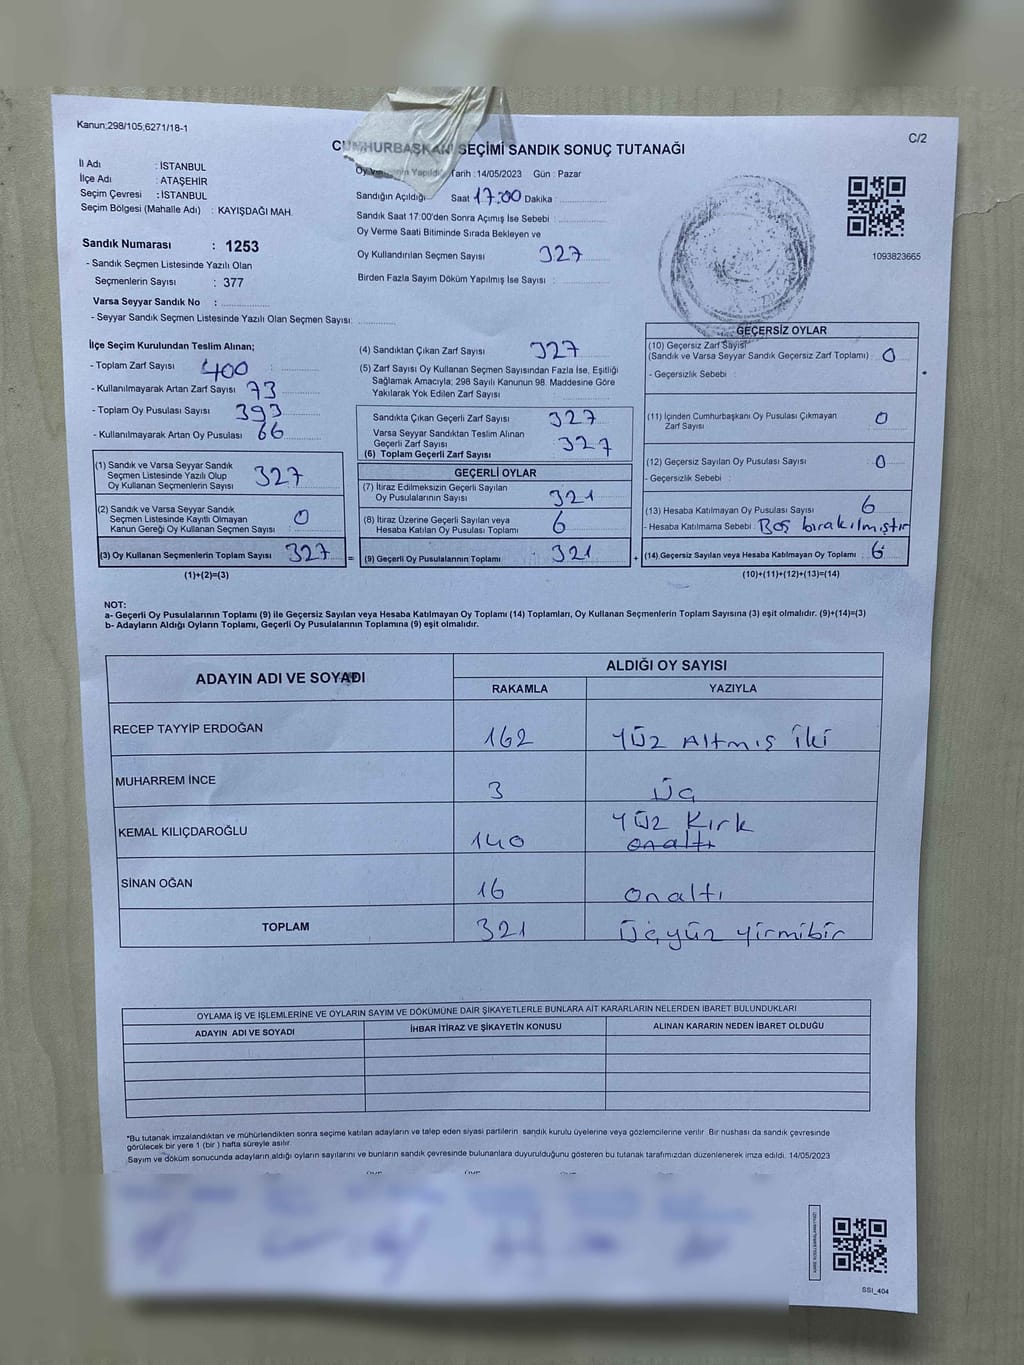 Kanun;298/105,6271/18-1
C/2
CUMHURBAŞKANI SEÇİMİ SANDIK SONUÇ TUTANAĞI
İl Adı : İSTANBUL
İlçe Adı : ATAŞEHİR
Seçim Çevresi : İSTANBUL
Seçim Bölgesi (Mahalle Adı) : KAYIŞDAĞI MAH.
Sandık Numarası : 1253
- Sandık Seçmen Listesinde Yazılı Olan
Seçmenlerin Sayısı : 377
Varsa Seyyar Sandık No :
- Seyyar Sandık Seçmen Listesinde Yazılı Olan Seçmen Sayısı:
Tarih :14/05/2023 Gün : Pazar
Sandığın Açıldığı Saat 17:00 Dakika :
Sandık Saat 17:00'den Sonra Açımış İse Sebebi :
Oy Verme Saati Bitiminde Sırada Bekleyen ve
Oy Kullandırılan Seçmen Sayısı 327
Birden Fazla Sayım Döküm Yapılmış İse Sayısı :
1093823665
İlçe Seçim Kurulundan Teslim Alınan;
- Toplam Zarf Sayısı : 400
- Kullanılmayarak Artan Zarf Sayısı 73
- Toplam Oy Pusulası Sayısı 393
- Kullanılmayarak Artan Oy Pusulası 66
(1) Sandık ve Varsa Seyyar Sandık
Seçmen Listesinde Yazılı Olup
Oy Kullanan Seçmenlerin Sayısı 327
(2) Sandık ve Varsa Seyyar Sandık
Seçmen Listesinde Kayıtlı Olmayan
Kanun Gereği Oy Kullanan Seçmen Sayısı : 0
(3) Oy Kullanan Seçmenlerin Toplam Sayısı 327 =
(1)+(2)=(3)
(4) Sandıktan Çıkan Zarf Sayısı 327
(5) Zarf Sayısı Oy Kullanan Seçmen Sayısından Fazla İse, Eşitliği
Sağlamak Amacıyla; 298 Sayılı Kanunun 98. Maddesine Göre
Yakılarak Yok Edilen Zarf Sayısı :
Sandıkta Çıkan Geçerli Zarf Sayısı 327
Varsa Seyyar Sandıktan Teslim Alınan
Geçerli Zarf Sayısı 327
(6) Toplam Geçerli Zarf Sayısı
GEÇERLİ OYLAR
(7) İtiraz Edilmeksizin Geçerli Sayılan
Oy Pusulalarının Sayısı 321
(8) İtiraz Üzerine Geçerli Sayılan veya
Hesaba Katılan Oy Pusulası Toplamı 6
(9) Geçerli Oy Pusulalarının Toplamı : 321 +
GEÇERSİZ OYLAR
(10) Geçersiz Zarf Sayısı
(Sandık ve Varsa Seyyar Sandık Geçersiz Zarf Toplamı) : 0
- Geçersizlik Sebebi :
(11) İçinden Cumhurbaşkanı Oy Pusulası Çıkmayan
Zarf Sayısı 0
(12) Geçersiz Sayılan Oy Pusulası Sayısı : 0
- Geçersizlik Sebebi :
(13) Hesaba Katılmayan Oy Pusulası Sayısı 6
- Hesaba Katılmama Sebebi : Boş bırakılmıştır
(14) Geçersiz Sayılan veya Hesaba Katılmayan Oy Toplamı : 6
(10)+(11)+(12)+(13)=(14)
NOT:
a- Geçerli Oy Pusulalarının Toplamı (9) ile Geçersiz Sayılan veya Hesaba Katılmayan Oy Toplamı (14) Toplamları, Oy Kullanan Seçmenlerin Toplam Sayısına (3) eşit olmalıdır. (9)+(14)=(3)
b- Adayların Aldığı Oyların Toplamı, Geçerli Oy Pusulalarının Toplamına (9) eşit olmalıdır.
ADAYIN ADI VE SOYADI
ALDIĞI OY SAYISI
RAKAMLA YAZIYLA
RECEP TAYYİP ERDOĞAN 162 YÜZ Altmış iki
MUHARREM İNCE 3 Üç
KEMAL KILIÇDAROĞLU 140 YÜZ Kırk
onaltı
SİNAN OĞAN 16 onaltı
TOPLAM 321 Üçyüz yirmibir
OYLAMA İŞ VE İŞLEMLERİNE VE OYLARIN SAYIM VE DÖKÜMÜNE DAİR ŞİKAYETLERLE BUNLARA AİT KARARLARIN NELERDEN İBARET BULUNDUKLARI
ADAYIN ADI VE SOYADI İHBAR İTİRAZ VE ŞİKAYETİN KONUSU ALINAN KARARIN NEDEN İBARET OLDUĞU
*Bu tutanak imzalandıktan ve mühürlendikten sonra seçime katılan adayların ve talep eden siyasi partilerin sandık kurulu üyelerine veya gözlemcilerine verilir. Bir nushası da sandık çevresinde
görülecek bir yere 1 (bir ) hafta süreyle asılır.
Sayım ve döküm sonucunda adayların aldığı oyların sayılarını ve bunların sandık çevresinde bulunanlara duyurulduğunu gösteren bu tutanak tarafımızdan düzenlenerek imza edildi. 14/05/2023
SSI_404